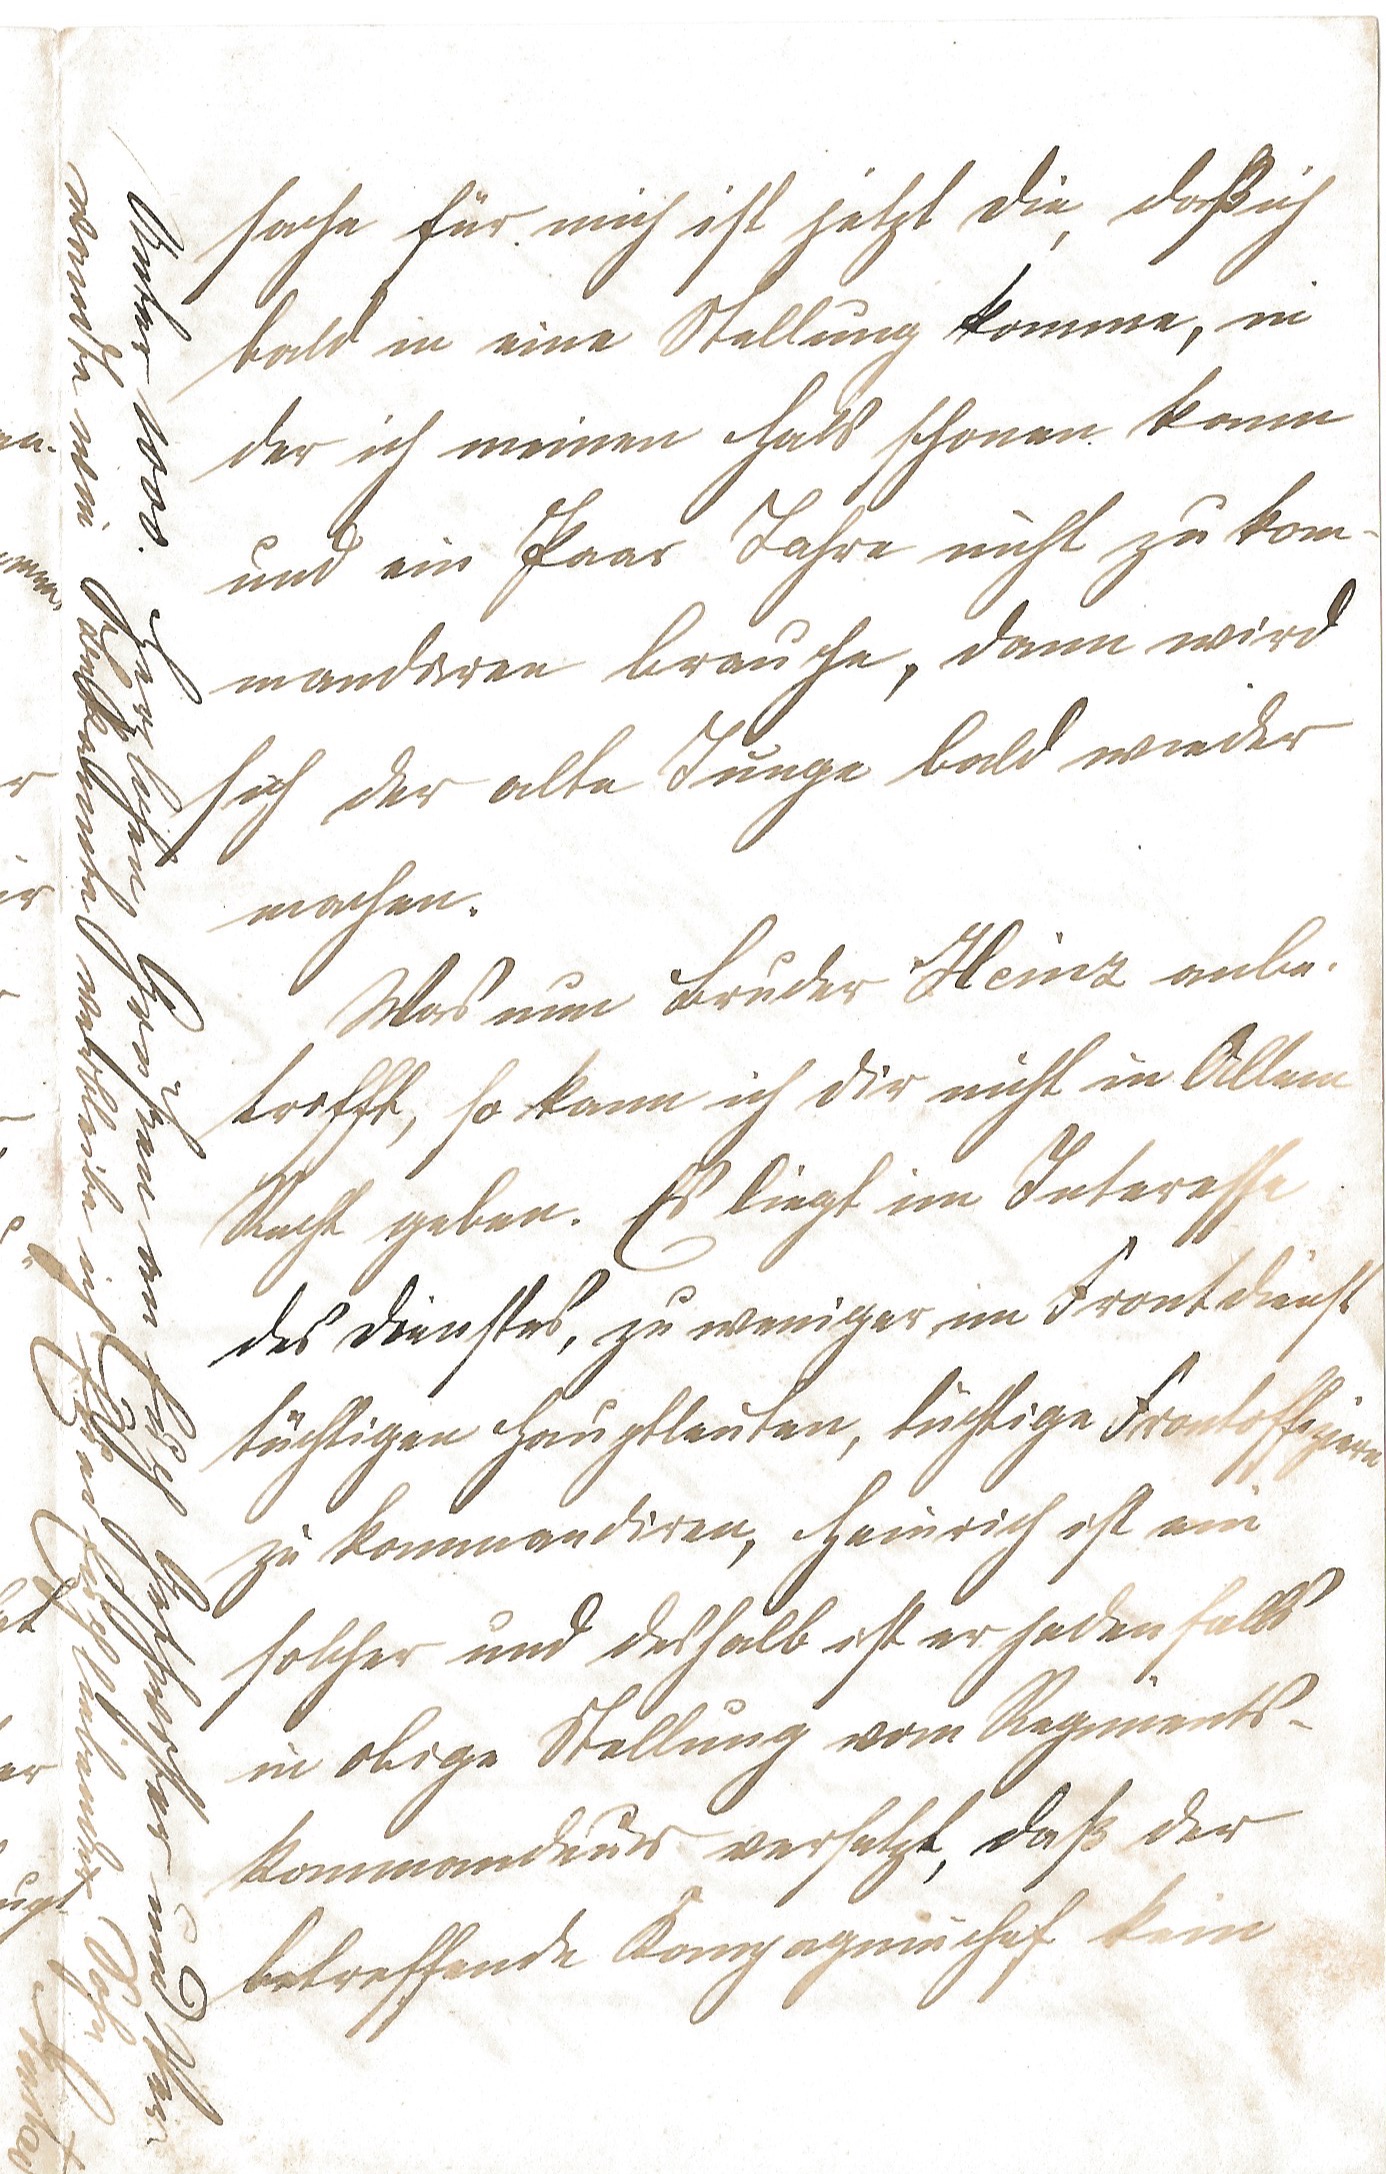 sache für mich ist jetzt die, daß ich
bald in eine Stellung komme, in
der ich meinen Hals schonen kann
und ein Paar Jahre nicht zu kom-
mandiren brauche, dann wird
sich der alte Junge bald wieder
machen.
Was nun Bruder Heinz anbe-
trifft, so kann ich dir nicht in Allem
Recht geben. Es liegt im Interesse
des Dienstes, zu weniger im Frontdienst
tüchtigen Hauptleuten, tüchtige Frontoffiziere
zu kommandiren, Heinrich ist ein
solcher und deshalb ist er jedenfalls
in obige Stellung vom Regiments-
kommandeur versetzt, daß der
betreffende Kompagniechef kein
Herzlichen Grüßen an
verbleibe ich
Sohn